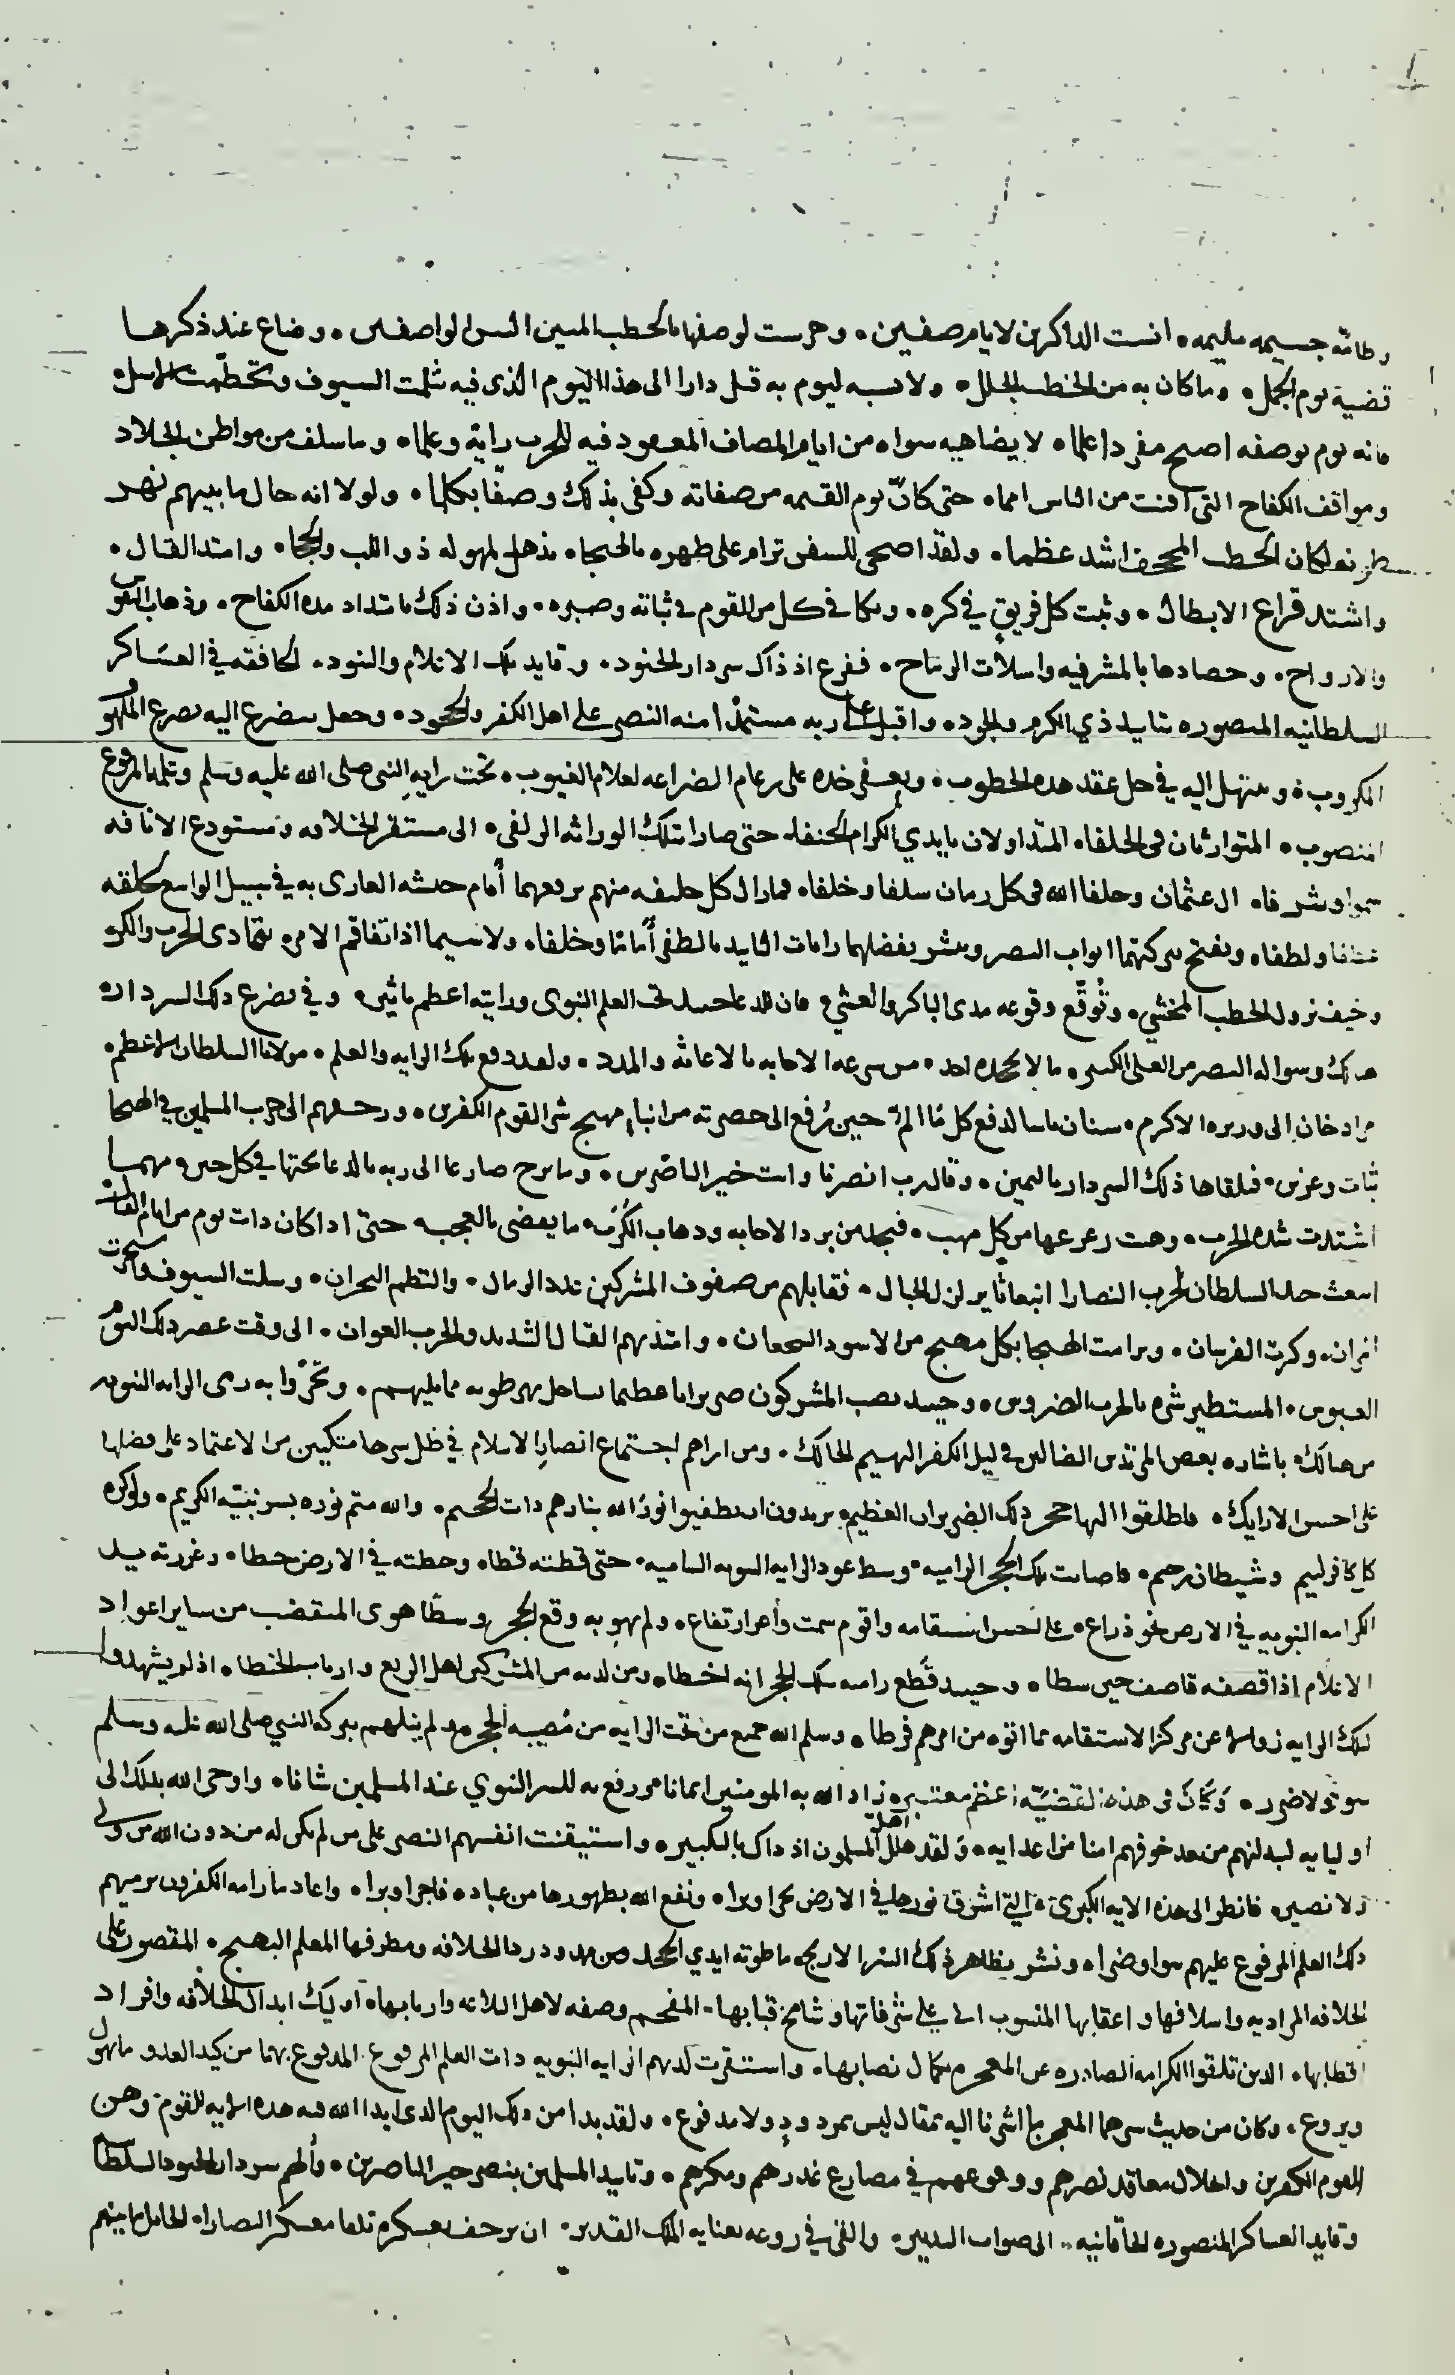 وطامّه جسيمه مليمه • انست الذاكرين لايام صفين • وخرست لوصفها بالخطب المبين السن الواصفين • وضاع عند ذكرها
قضية يوم الجمل • وما كان به من الخطب الجلل • ولا نسبه ليوم به قتل دارا الى هذا اليوم الذي فيه ثلمت السيوف وتحطّمت الاسل •
فانه يوم بوصفه اصبح مفردا علما • لا يضاهيه سواه من ايام المصاف المعهود فيه للحرب راية وعلما • وما سلف من مواطن الجلاد
ومواقف الكفاح التي افنت من الناس امما • حتى كانّ يوم القيمه من صفاته وكفى بذلك وصفا بكلما • ولولا انه حال ما بينهم نهر
طونه لكان الخطب المجحف اشد عظما • ولقد اضحى للسفن تزام على ظهره بالهيجا • يذهل لهوله ذو اللب والحجا • وامتد القتال •
واشتد قراع الابطال • وثبت كل فريق في كره • وتكافى كل من القوم في ثباته وصبره • واذن ذلك بامتداد مدة الكفاح • وذهاب النفوس
والارواح • وحصادها بالمشرفيه واسلات الرماح • ففزع اذ ذاك سردار الجنود • وقايد تلك الاعلام والبنود • الخافقه في العساكر
السلطانيه المنصوره بتاييد ذي الكرم والجود • واقبل على ربه مستمدا منه النصر على اهل الكفر والجحود • وجعل يتضرع اليه تضرع الملهوف
المكروب • ويبتهل اليه في حل عقد هذه الخطوب • ويعفر خده على رغام الضراعه لعلام الغيوب • تحت راية النبي صلى الله عليه وسلم وعلمه المرفوع
المنصوب • المتوارثان في الخلفاء المتداولان بايدي الكرام الحنفاء حتى صارا بتلك الوراثه الزلفى • الى مستقر الخلافه ومستودع الانافه
سموا وشرفا • ال عثمان وخلفا الله في كل زمان سلفا وخلفا • فما زال كل خليفه منهم يرفعهما أمام جيشه الغازي به في سبيل الواسع لخلقه
عطفا ولطفا • وتفتح ببركتهما ابواب النصر وينشر بفضلهما رايات التاييد بالظفر أماما وخلفا • ولا سيما اذا تفاقم الامر • بتمادى الحرب والكر
وخيف نزول الخطب المخشي • وتُوقّع وقوعه مدى الباكر والعشي • فان للدعا حينئذ تحت العلم النبوى ورايته اعظم ماثير • وفي تضرع ذلك السردار •
هنالك وسواله النصر من العلي الكبير • ما لا يجحده احد • من سرعه الاجابه بالاغاثه والمدد • ولقد دفع تلك الرايه والعلم • مولانا السلطان الاعظم •
مراد خان الى وزيره الاكرم • سنان باشا لدفع كل مُا المّ حين رُفع الى حضرته من انباء مهيج شر القوم الكفرين • وزحفهم الى حرب المسلمين في الهيجا
ثبات وعزين • فتلقاها ذلك السردار باليمين • وقال رب انصرنا وانت خير الناصرين • وما برح ضارعا الى ربه بالدعا تحتها في كل حين • مهما
اشتدت شده الحرب • وهبت زعزعها من كل مهب • فيجد من برد الاجابه وذهاب الكُرَب • ما يقضي بالعجب • حتى اذا كان ذات يوم من ايام القتال
انبعث جند السلطان لحرب النصارا انبعاثا يزلزل الجبال • فقابلهم من صفوف المشركين عدد الرمال • والتطم البحران • وسلت السيوف وتسعّرت
النيران • وكرت الفرسان • وترامت الهيجا بكل مهيج من الاسود الشجعان • وامتد بهم القتال الشديد والحرب العوان • الى وقت عصر ذلك اليوم
العبوس • المستطير شره بالحرب الضروس • وحينئذ نصب المشركون ضربزانا عظيما بساحل نهر طونه مما يليهم • وتحرّوا به رمى الرايه النبويه
من هنالك • باشاره بعض المرتدين الضالين في ليل الكفر البهيم الحالك • ومن اراهم اجتماع انصار الاسلام في ظل سرحها متكيين من الاعتماد على فضلها
على احسن الارايك • فاطلقوا اليها حجر ذلك الضربزان العظيم • يريدون ان يطفيوا نور الله بنارهم ذات الجحيم • والله متم نوره بسر نبيّه الكريم • ولو كره
كل كافر لئيم وشيطان رجيم • فاصابت تلك الحجر الراميه • وسط عود الرايه النبويه الساميه • حتى قطته قطا • وحطته في الارض حطا • وغرزته يد
الكرامه النبويه في الارض نحو ذراع • على احسن استقامه واقوم سمت وأعز ارتفاع • ولم يهو به وقع الحجر وسطّا هوى المنقضب من ساير اعواد
الاعلام اذا قصفه قاصف حين سطا • وحينئذ قطع رامى تلك الحجر انه اخطا • ومن لديه من المشركين اهل الزيغ وارباب الخطا • اذ لم يشهدوا
لتلك الرايه زوالا عن مركز الاستقامه مما اتوه من امرهم فرطا • وسلم الله جميع من تحت الرايه من مُصيبه الحجر • ولم ينلهم ببركة النبي صلى الله عليه وسلم
سوٌ ولا ضرر • وكان في هذه القضيّه اعظم معتبر • زاد الله به المومنين ايمانا • ورفع به للسر النبوي عند المسلمين شانا • واوحى الله بذلك الى
اوليايه ليبدلنهم من بعد خوفهم امنا من اعدايه • ولقد هلل أهل المسلمون اذ ذاك بالتكبير • واستيقنت انفسهم النصر على من لم يكن له من دون الله من ولي
ولا نصير • فانظر الى هذه الايه الكبرى • التي اشرق نورها في الارض بحرا وبرا • ونفع الله بظهورها من عباده فاجرا وبرا • واعاد ما رامه الكفرون برميهم
ذلك العلم المرفوع عليهم سوا وضرا • ونشر بظاهر ذلك السر الاريج ما طوته ايدي الجحد من برود رد الخلافه ومطرفها المعلم البهيج • المقصور على
الخلافه المراديه واسلافها واعقابها المنسوب الى علي شرفاتها وشامخ قبابها • المفحم وصفه لاهل البلاغه واربابها • اوليك ابدال الخلافه وافراد
اقطابها • الذين تلقوا الكرامه الصادره عن المعجزه بكمال نصابها • واستقرت لديهم الرايه النبويه ذات العلم المرفوع • المدفوع بهما من كيد العدو ما يهول
ويروع • وكان من حديث سرهما المعجز ما اشرنا اليه بمقال ليس بمردود ولا مدفوع • ولقد بدا من ذلك اليوم الذى ابدا الله فيه هذه الايه للقوم وهن
القوم الكفرين وانحلال معاقد نصرهم ووقوعهم في مصارع غدرهم ومكرهم • وتاييد المسلمين بنصر خير الناصرين • وأُلهم سردار الجنود السلطانيه
وقايد العساكر المنصوره الخاقانيه • الى صواب التدبير • والقى في روعه بعنايه الملك القدير • ان يزحف بعسكره تلقا معسكر النصارا • الحايل ما بينهم